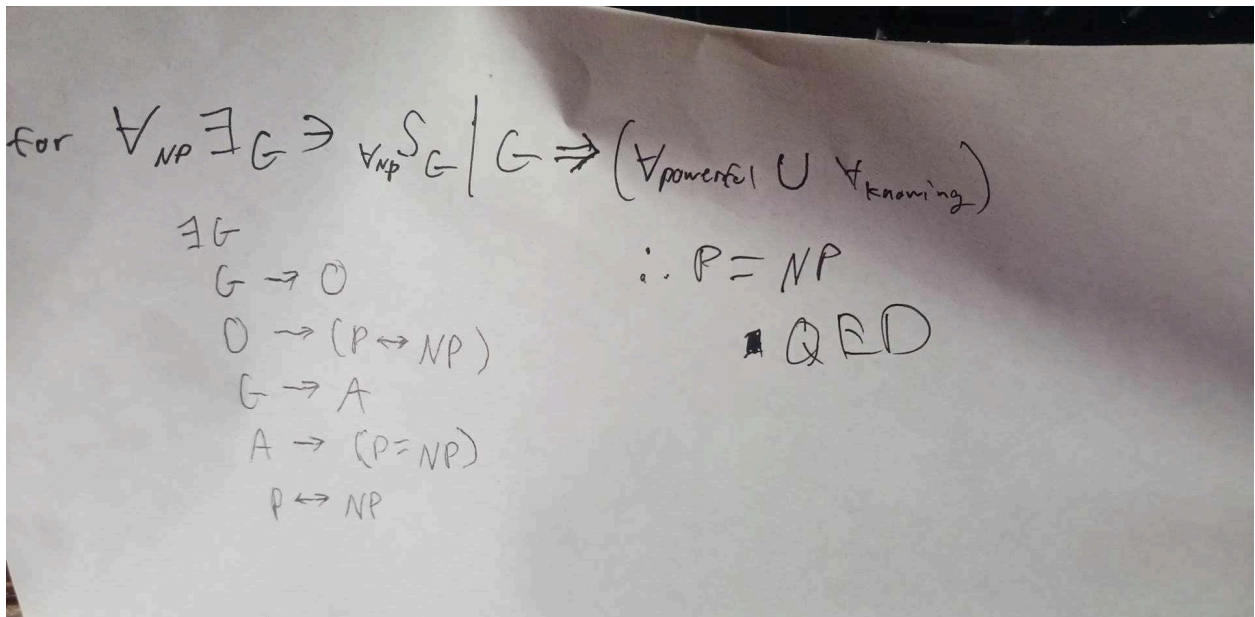 for ∀_NP ∃_G ∋ _∀NP S_G | G ⇒ (∀_powerful ∪ ∀_knowing)
∃G
G → O
O → (P ↔ NP)
G → A
A → (P = NP)
P ↔ NP
∴ P = NP
∎ QED